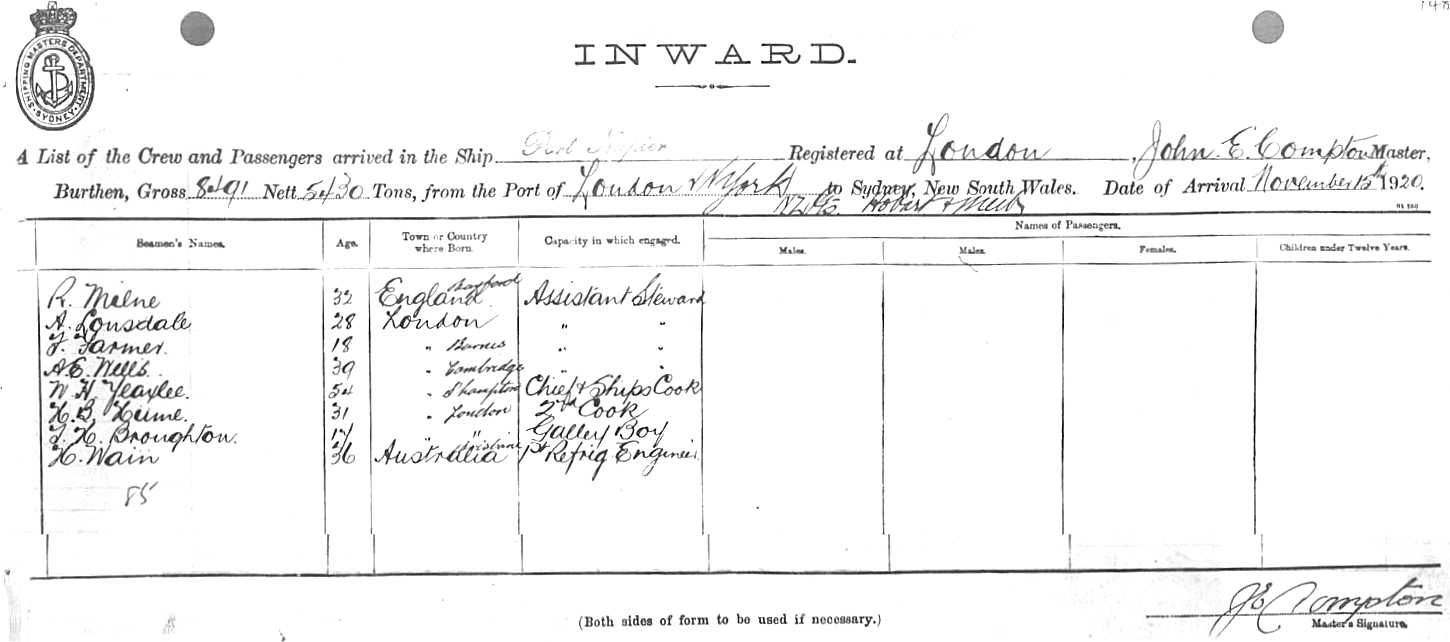 148
SHIPPING MASTERS DEPARTMENT
SYDNEY
INWARD.
A List of the Crew and Passengers arrived in the Ship Port Napier Registered at London, John. E. Compton Master,
Burthen, Gross 8491 Nett 5430 Tons, from the Port of London & N York to Sydney, New South Wales. Date of Arrival November 15th 1920.
Hobart &
Seamen's Names. Age. Town or Country where Born. Capacity in which engaged. Names of Passengers.
Males. Males. Females. Children under Twelve Years.
R. Milne 32 England Assistant Steward
A. Lonsdale 28 London " "
F. Farmer. 18 " Barnes " "
A.E. Wells. 39 " Cambridge " "
W. H. Yeaxlee. 54 " S'hampton Chief & Ships Cook
H. B. Hume. 31 " London 2nd Cook
F. H. Broughton. 17 " " Galley Boy
H. Wain 36 Australia Brisbane 1st Refrig Engineer
85
(Both sides of form to be used if necessary.)
JE Compton
Master's Signature.